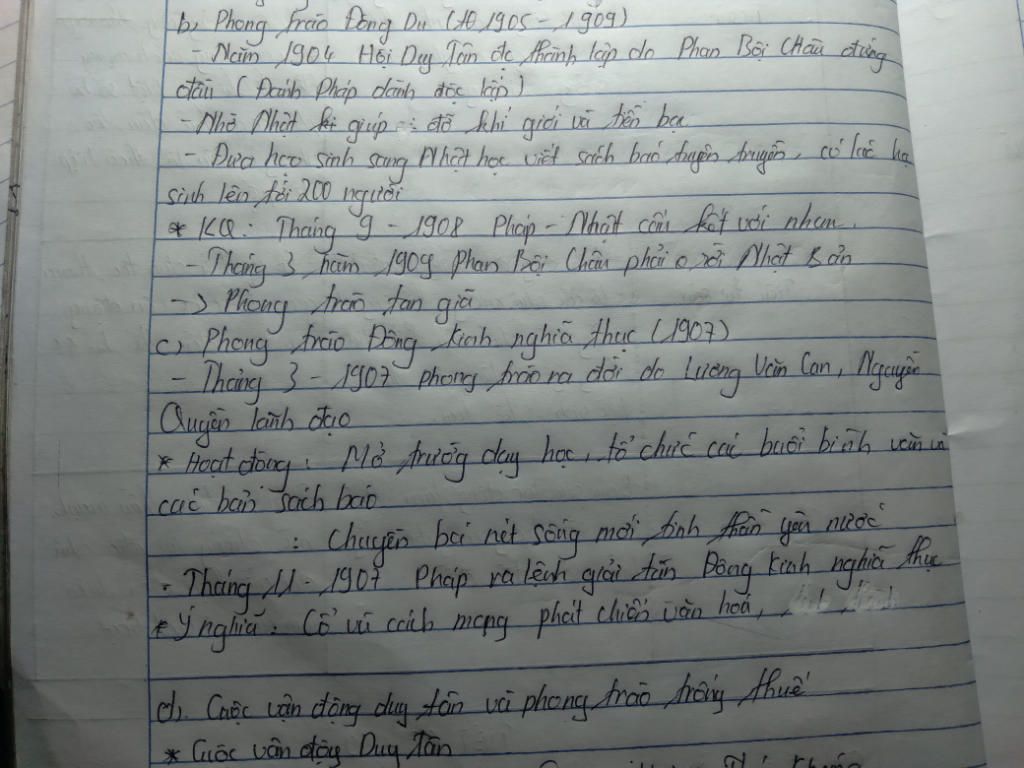 b) Phong trào Đông Du (10 1905 - 1909)
- Năm 1904 Hội Duy Tân đc thành lập do Phan Bội Châu đứng
đầu (Đánh Pháp dành độc lập)
- Nhờ Nhật giúp đỡ khí giới và tiền bạc
- Đưa học sinh sang Nhật học viết sách báo tuyên truyền, có lúc học
sinh lên tới 200 người
* KQ: Tháng 9 - 1908 Pháp - Nhật cấu kết với nhau.
- Tháng 3 năm 1909 Phan Bội Châu phải rời Nhật Bản
-> Phong trào tan giã
c) Phong trào Đông kinh nghĩa thục (1907)
- Tháng 3 - 1907 phong trào ra đời do Lương Văn Can, Nguyễn
Quyền lãnh đạo
* Hoạt động: Mở trường dạy học, tổ chức các buổi bình văn và
các bản sách báo
: Chuyền bá nét sống mới tinh thần yêu nước
- Tháng 11 - 1907 Pháp ra lệnh giải tán Đông kinh nghĩa thục
* Ý nghĩa: Cổ vũ cách mạng phát chiển văn hoá,
d). Cuộc vận động duy tân và phong trào trống thuế
* Cuộc vận động Duy Tân